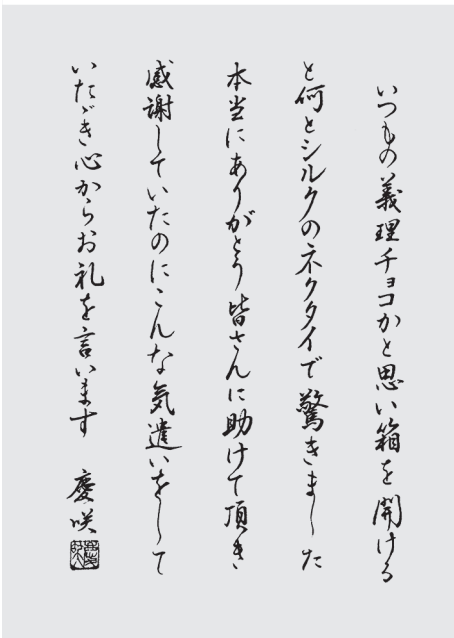 いつもの義理チョコかと思い箱を開ける
と何とシルクのネクタイで驚きました
本当にありがとう皆さんに助けて頂き
感謝していたのにこんな気遣いをして
いたゞき心からお礼を言います　慶咲